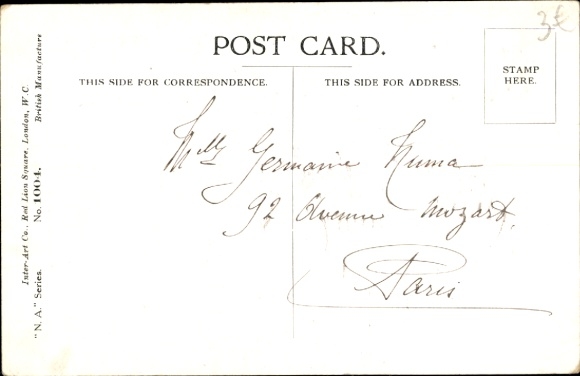 3€
POST CARD.
THIS SIDE FOR CORRESPONDENCE.
THIS SIDE FOR ADDRESS.
STAMP
HERE.
Mlle Germaine Numa
92 Avenue Mozart.
Paris
Inter-Art Co., Red Lion Square, London, W.C.
British Manufacture
"N. A." Series.
No. 1004.